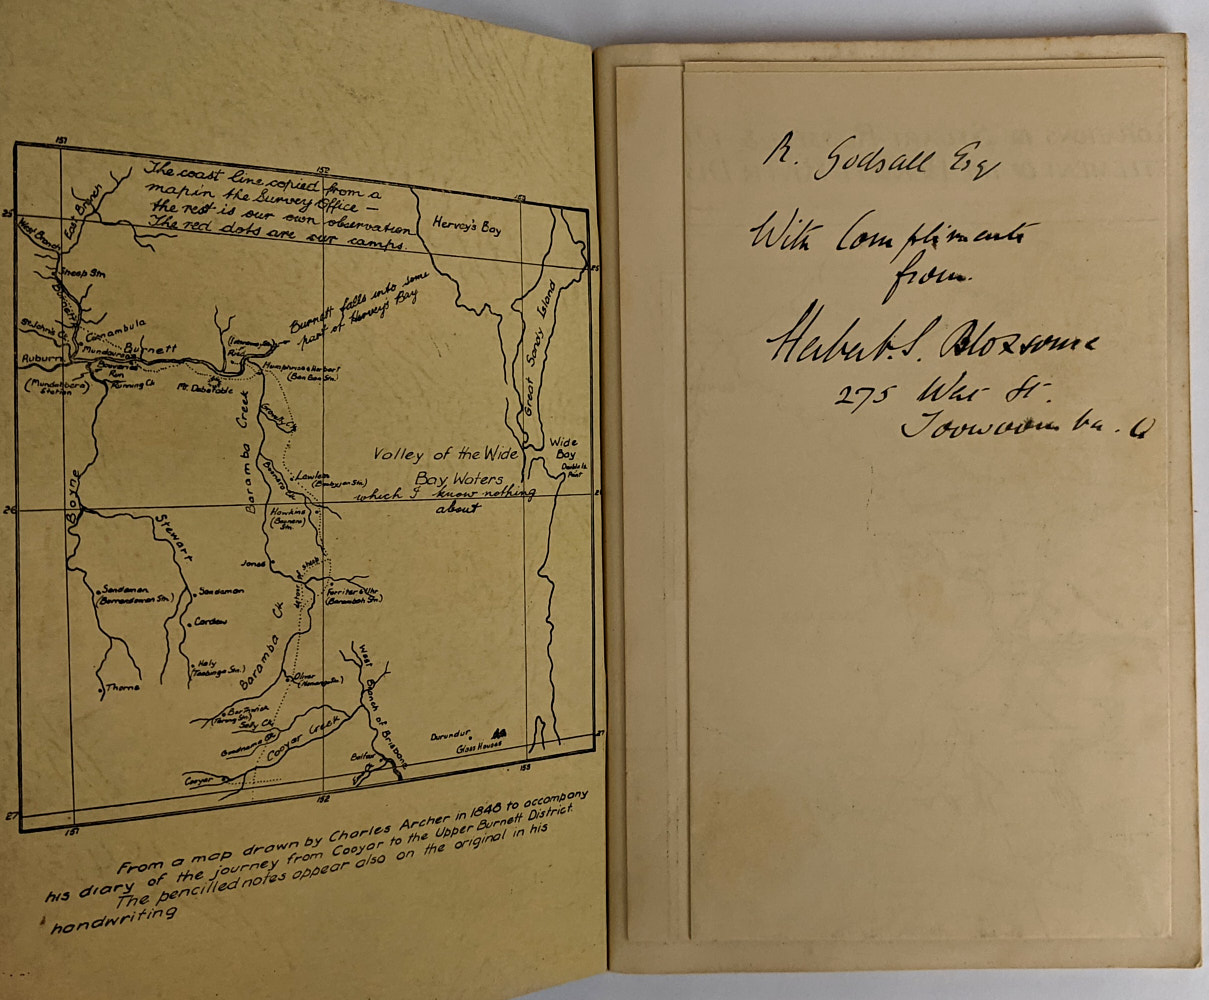 151
152
153
The coast line copied from a
map in the Survey Office —
the rest is our own observation
The red dots are our camps.
25
25
East Branch
West Branch
Hervey's Bay
Sheep Stn
Burnett
Burnett falls into some
part of Hervey's Bay
Great Sandy Island
St. John's Ck
Cinnambula
Mundouran
Burnett
Auburn
Run
(Mundubbera)
Station
Running Ck
Mt. Debatable
Humphries & Herbert
(Ban Ban Stn.)
Baramba Creek
Valley of the Wide
Bay Waters
which I know nothing
about
Wide
Bay
Double Is.
Point
Lawless
(Boobyjan Stn.)
Hawkins
(Boonara)
Stn.
26
Boyne
Stewart
Jones
Ferriter & Uhr
(Barambah Stn.)
Sandeman
(Burrandowan Stn.)
Sandeman
Cardew
Haly
(Taabinga Stn.)
Thorns
Baramba Ck
Oliver
(Nanango Stn.)
Borthwick
(Tarong Stn.)
Cooyar Creek
West Branch of Brisbane
Balfour
Durundur
Glass Houses
Cooyar
27
27
151
152
153
From a map drawn by Charles Archer in 1848 to accompany
his diary of the journey from Cooyar to the Upper Burnett District.
The pencilled notes appear also on the original in his
handwriting
R. Godsall Esq
With Compliments
from
Herbert. S. Bloxsome
275 West St.
Toowoomba. Q